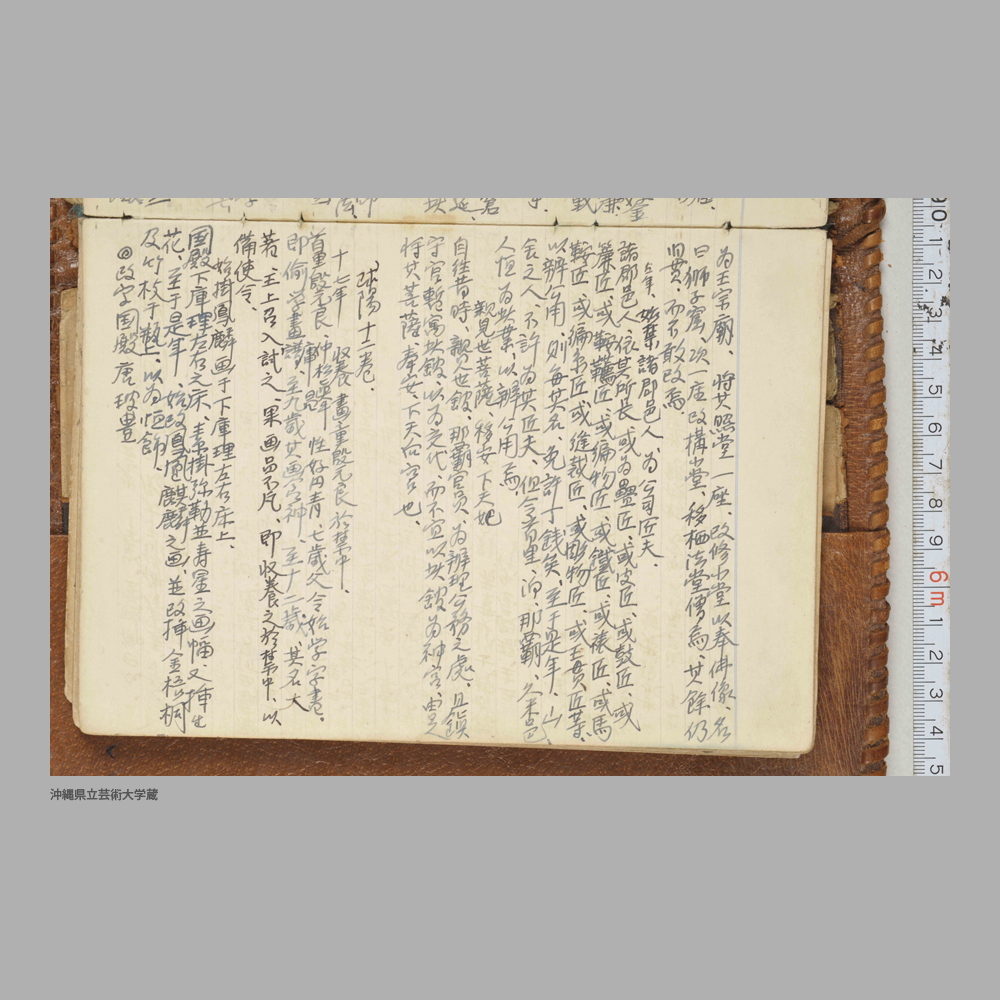 為王宗廟、将其照堂一座、改修小堂以奉佛像、名
曰獅子窟、次一座改構堂、移栖法堂僧焉、其餘仍
旧貫、而不敢改焉
七年、始禁諸郡邑人、為公司匠夫、
諸郡邑人、依其所長、或為畳匠、或皮匠、或鼓匠、或
簾匠、或鞴韉匠、或編物匠、或鐵匠、或裱匠、或馬
鞍匠、或編糸匠、或縫裁匠、或彫物匠、或玉貫匠葉、
以辨公用、則毎其名、免許丁銭矣、至于是年、山
舎之人、不許為其匠夫、但令首里、泊、那覇、久米邑
人恒為此業、以辨公用焉、
親見世菩薩、移安下天妃
自往昔時、親見世館、那覇官員、為辨理公務之處、且鎖
守官暫寓此館、以為交代、而不宜以此館為神宮、由是
将其菩薩、奉安下天妃宮也、
球陽十二巻、
十七年 収養畫童殷元良於禁中、
首里殷元良 仲村渠 庸昆 性好丹青、七歳父令始学字畫、
即偷学畫譜、至九歳其画字神、至十二歳、其名大
著、主上召入試之、果画品不凡、即収養之於禁中、以
備使令、
始掛鳳麟画于下庫理左右床上、
国殿下庫理左右之床、素掛弥勒並寿星之画幅、又挿生
花、至于是年、始改鳳凰麒麟之画、並改挿金梧桐
及竹枝于瓶上、以為恒飾、
◎改字国殿唐玻豊
沖縄県立芸術大学蔵